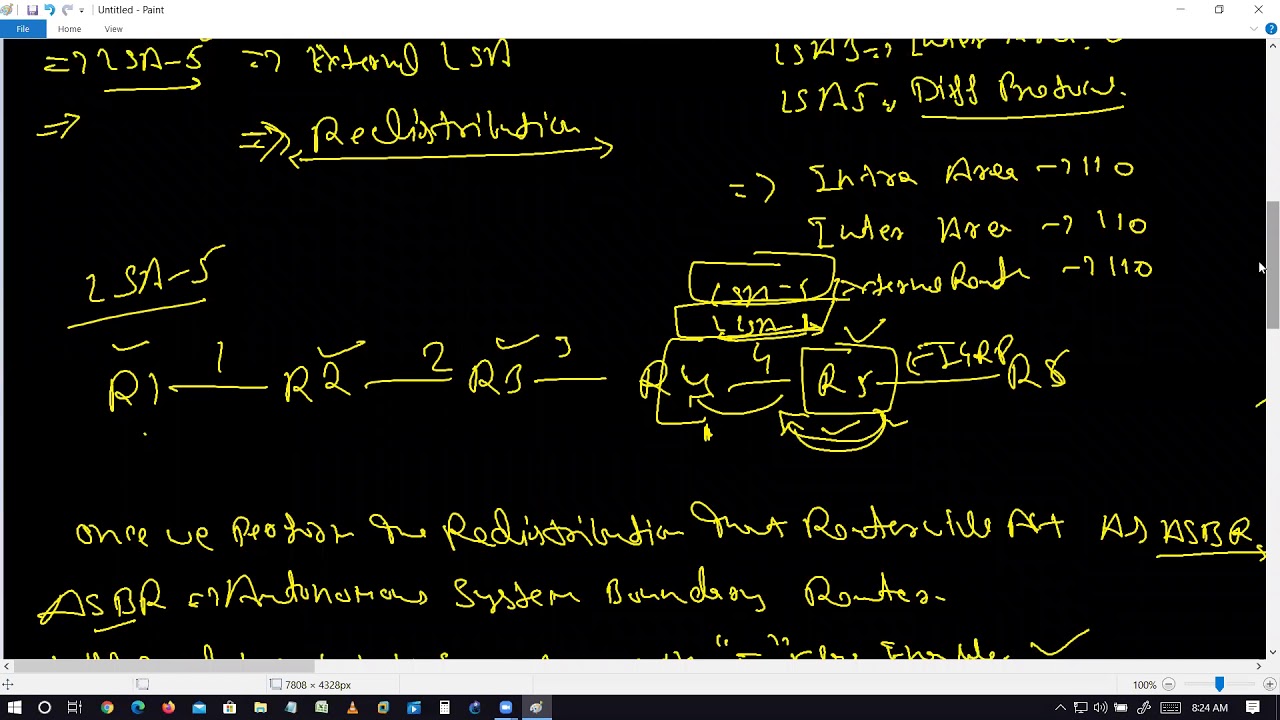 Untitled - Paint
File Home View
=> LSA-5 => External LSA
LSA3=> Inter Area.
LSA5 => Diff Protocol.
=>
=>> Redistribution
=> Intra Area -> 110
Inter Area -> 110
External Route -> 110
LSA-5
LSA-5
LSA-1
R1 1 R2 2 R3 3 R4 4 R5 EIGRP R6
Once we Perform the Redistribution that Router will Act AS ASBR
ASBR => Autonomous System Boundary Router.
7808 × 4328px
100%
8:24 AM